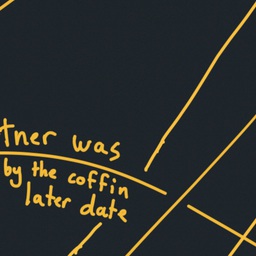 was
by the coffin
later date